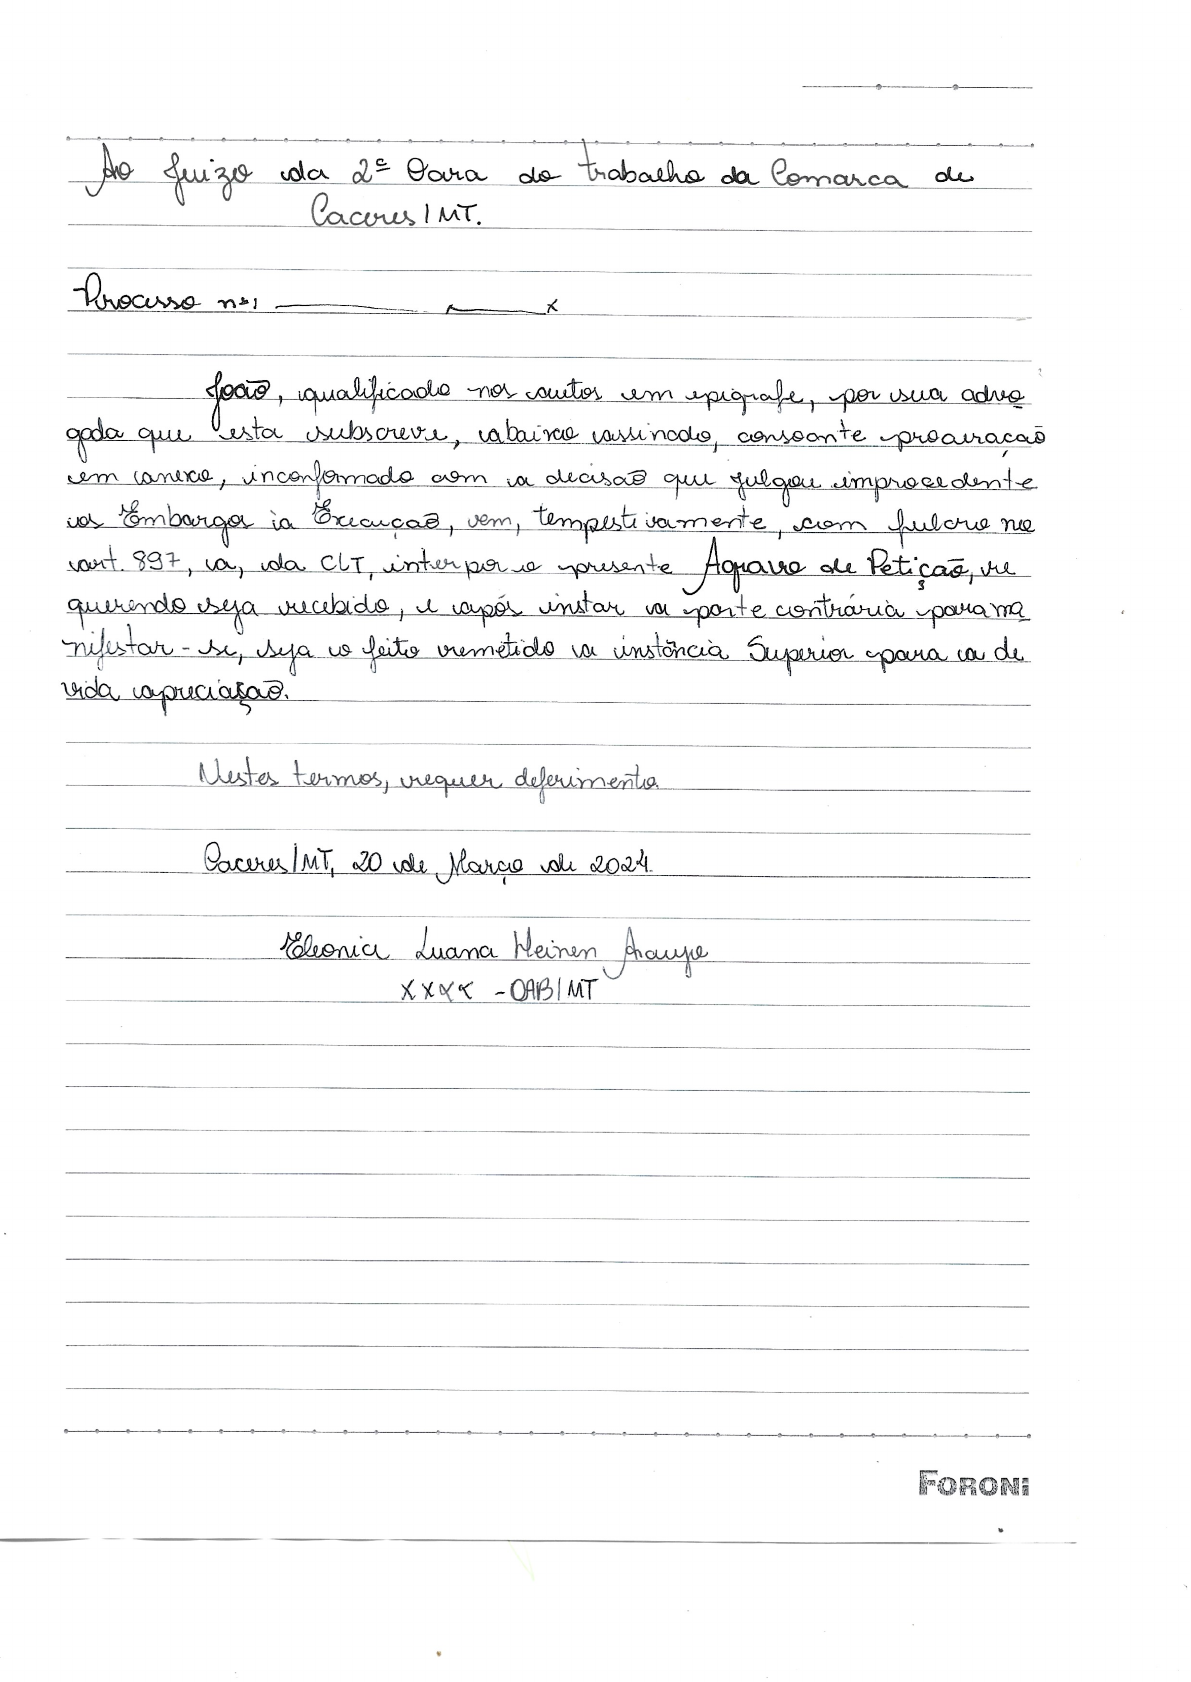 Ao Juizo da 2ª Vara do trabalho da Comarca de
Caceres/MT.
Processo nº:
João, qualificado nos autos em epigrafe, por sua advo
gada que esta subscreve, abaixo assinado, consoante procuração
em anexo, inconformado com a decisão que julgou improcedente
os Embargos à Execução, vem, tempestivamente, com fulcro no
art. 897, a, da CLT, interpor o presente Agravo de Petição, re
querendo seja recebido, e após instar a parte contrária para ma
nifestar-se, seja o feito remetido a instância Superior para a de
vida apreciação.
Nestes termos, requer deferimento.
Caceres/MT, 20 de Março de 2024.
Luana Heinen Araujo
XXXX - OAB/MT
FORONI